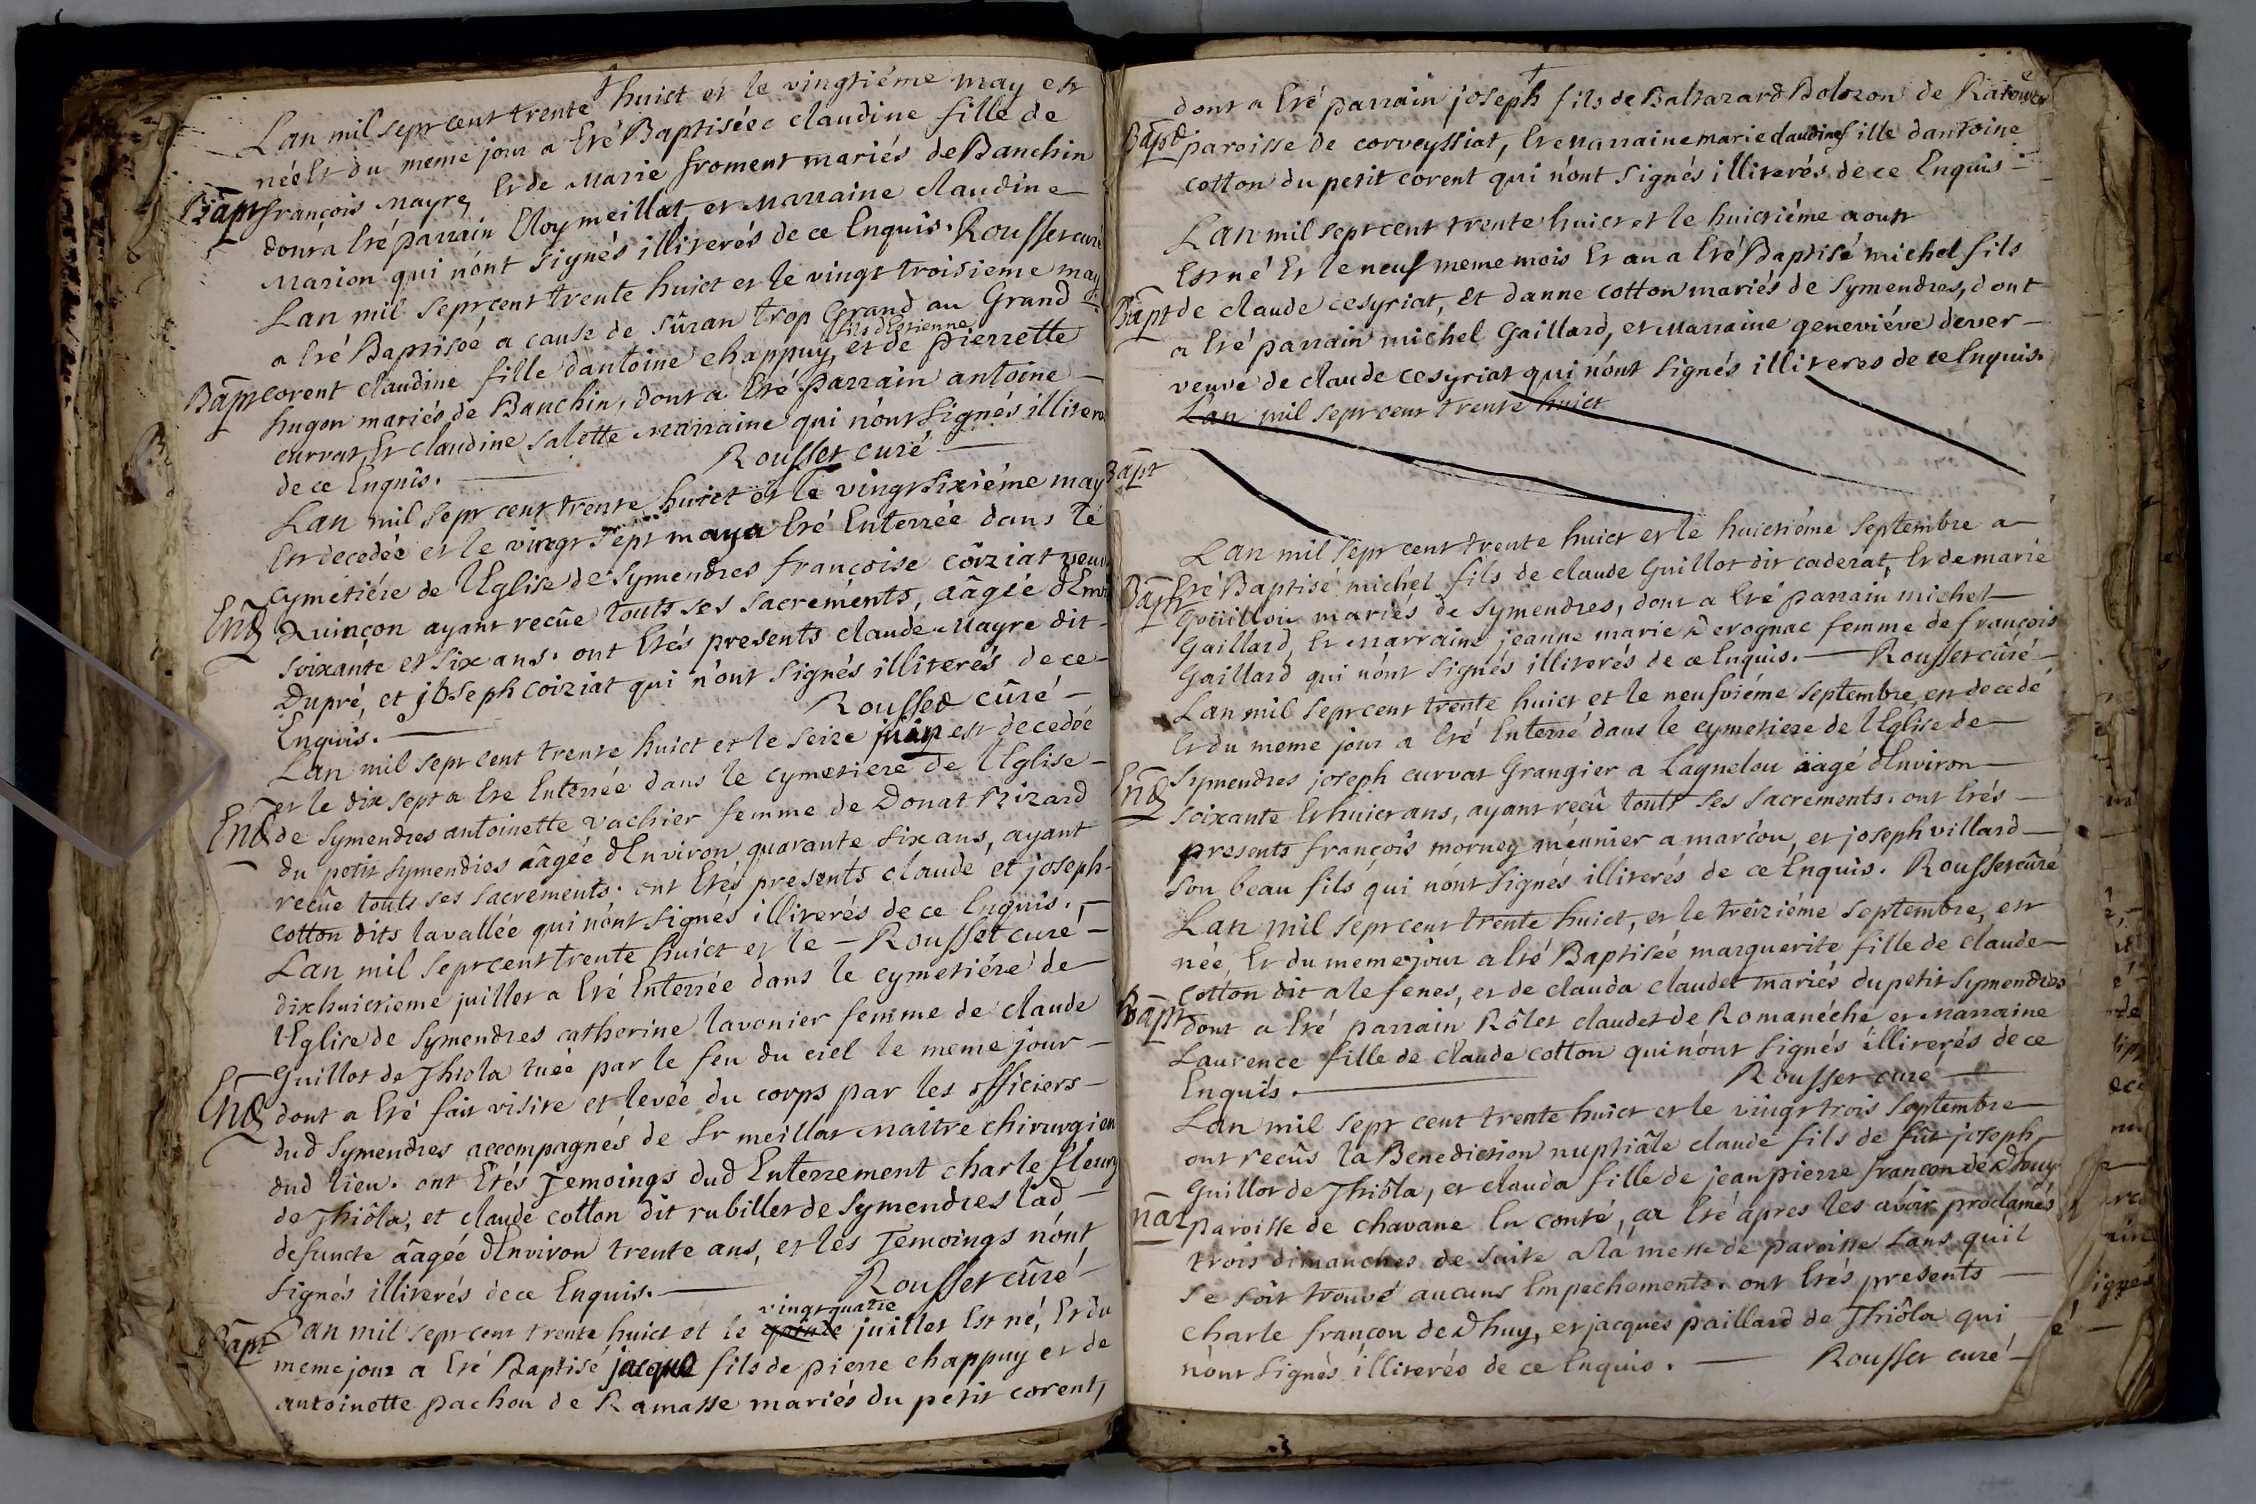 Lan mil sept cent trente huict et le vingtiéme may est
née Et du meme jour a Eté Baptiséé claudine fille de
Bapt françois Mayre, Et de Marie froment mariés de Banchin
dont a Eté parrain Eloy meillat, et Marraine claudine
Marion qui n'ont signés illiterés de ce Enquis. Rousset curé
Lan mil sept cent trente huict et le vingt troisieme may
a Eté Baptisée a cause de Sûran trop Grand au Grand
fils d'Estienne
Bapt corent claudine fille dantoine chappuy, et de pierrette
hugon mariés de Banchin, dont a Eté parrain antoine
curvat, Et claudine salette Marraine qui n'ont signés illiterés
de ce Enquis. Rousset curé
Lan mil sept cent trente huict et le vingt sixiéme may
Est decedée et le vingt sept may a Eté Enterrée dans le
cymetiére de lEglise de Symendres françoise coiziat veuve
End Quinçon ayant recûe touts ses sacrements, âagée dEnviron
soixante et six ans. ont Etés presents claude Mayre dit
Dupré, et joseph coiziat qui n'ont signés illiterés de ce
Enquis. Rousset cûré
Lan mil sept cent trente huict et le seize juin est decedée
et le dix sept a Eté Enterrée dans le cymetiere de lEglise
End de Symendres antoinette vachier femme de Donat Rizard
du petit Symendres âagée dEnviron quarante six ans, ayant
recûe touts ses sacrements. ont Etés presents claude et joseph
cotton dits lavallée qui n'ont signés illiterés de ce Enquis.
Lan mil sept cent trente huict et le - Rousset curé
dixhuictieme juillet a Eté Enterrée dans le cymetiére de
lEglise de Symendres catherine lavonier femme de claude
Guillot de Thiola tuée par le feu du ciel le meme jour
End dont a Eté fait visite et levée du corps par les officiers
dud Symendres accompagnés de Sr meillat Maitre chirurgien
dud lieu. ont Etés Temoings dud Enterrement charle fleury
de Thiôla, et claude cotton dit rubillet de Symendres lad
defuncte âagée dEnviron trente ans, et les Temoings n'ont
signés illiterés de ce Enquis. Rousset cûré
vingt quatre
Bapt Lan mil sept cent trente huict et le juillet Est né, Et du
meme jour a Eté Baptisé jacque fils de pierre chappuy et de
antoinette pachon de Ramasse mariés du petit corent,
dont a Eté parrain joseph fils de Baltazard Bolozon de
Bapt paroisse de corveyssiat, Et Marraine marie claudine fille dantoine
cotton du petit corent qui n'ont signés illiterés de ce Enquis
Lan mil sept cent trente huict et le huictiéme aoust
Est né Et le neuf meme mois Et an a Eté Baptisé michel fils
Bapt de claude cesyriat, Et danne cotton mariés de Symendres, dont
a Eté parrain michel Gaillard, et Marraine geneviéve dever
veuve de claude cesyriat qui n'ont signés illiteres de ce Enquis.
Lan mil sept cent trente huict
Bapt
Lan mil sept cent trente huict et le huictiéme septembre a
Eté Baptisé michel fils de claude Guillot dit caderat, Et de marie
Bapt Goüillou mariés de Symendres, dont a Eté parrain michel
Gaillard, Et Marraine jeanne marie Derognac femme de françois
Gaillard qui n'ont signés illiterés de ce Enquis. Rousset cûré
Lan mil sept cent trente huict et le neufviéme septembre, est decedé
Et du meme jour a Eté Enterré dans le cymetiere de lEglise de
Symendres joseph curvat Grangier a Lagnelou âagé dEnviron
End soixante Et huict ans, ayant reçû touts ses sacrements. ont Etés
presents françois mornay meunier a marcou, et joseph villard
son beau fils qui n'ont signés illiterés de ce Enquis. Rousset cûré
Lan mil sept cent trente huict, et le treiziéme septembre, est
née, Et du meme jour a Eté Baptisée marguerite fille de claude
cotton dit alefenes, et de clauda claudet mariés du petit Symendres
Bapt dont a Eté parrain Rôlet claudet de Romanéche et Marraine
Laurence fille de claude cotton qui n'ont signés illiterés de ce
Enquis. Rousset curé
Lan mil sept cent trente huict et le vingt trois septembre
ont recûs la Benediction nuptiâle claude fils de fût joseph
Guillot de Thiôla, et clauda fille de jean pierre françon de Dhuy
paroisse de chavane En conté, ca Eté âpres les avoir proclamés
trois dimanches de suite a la messe de paroisse sans quil
se soit trouvé aucuns Empechements. ont Etés presents
charle françon de Dhuy, et jacques paillard de Thiôla qui
n'ont signés illiterés de ce Enquis. Rousset curé